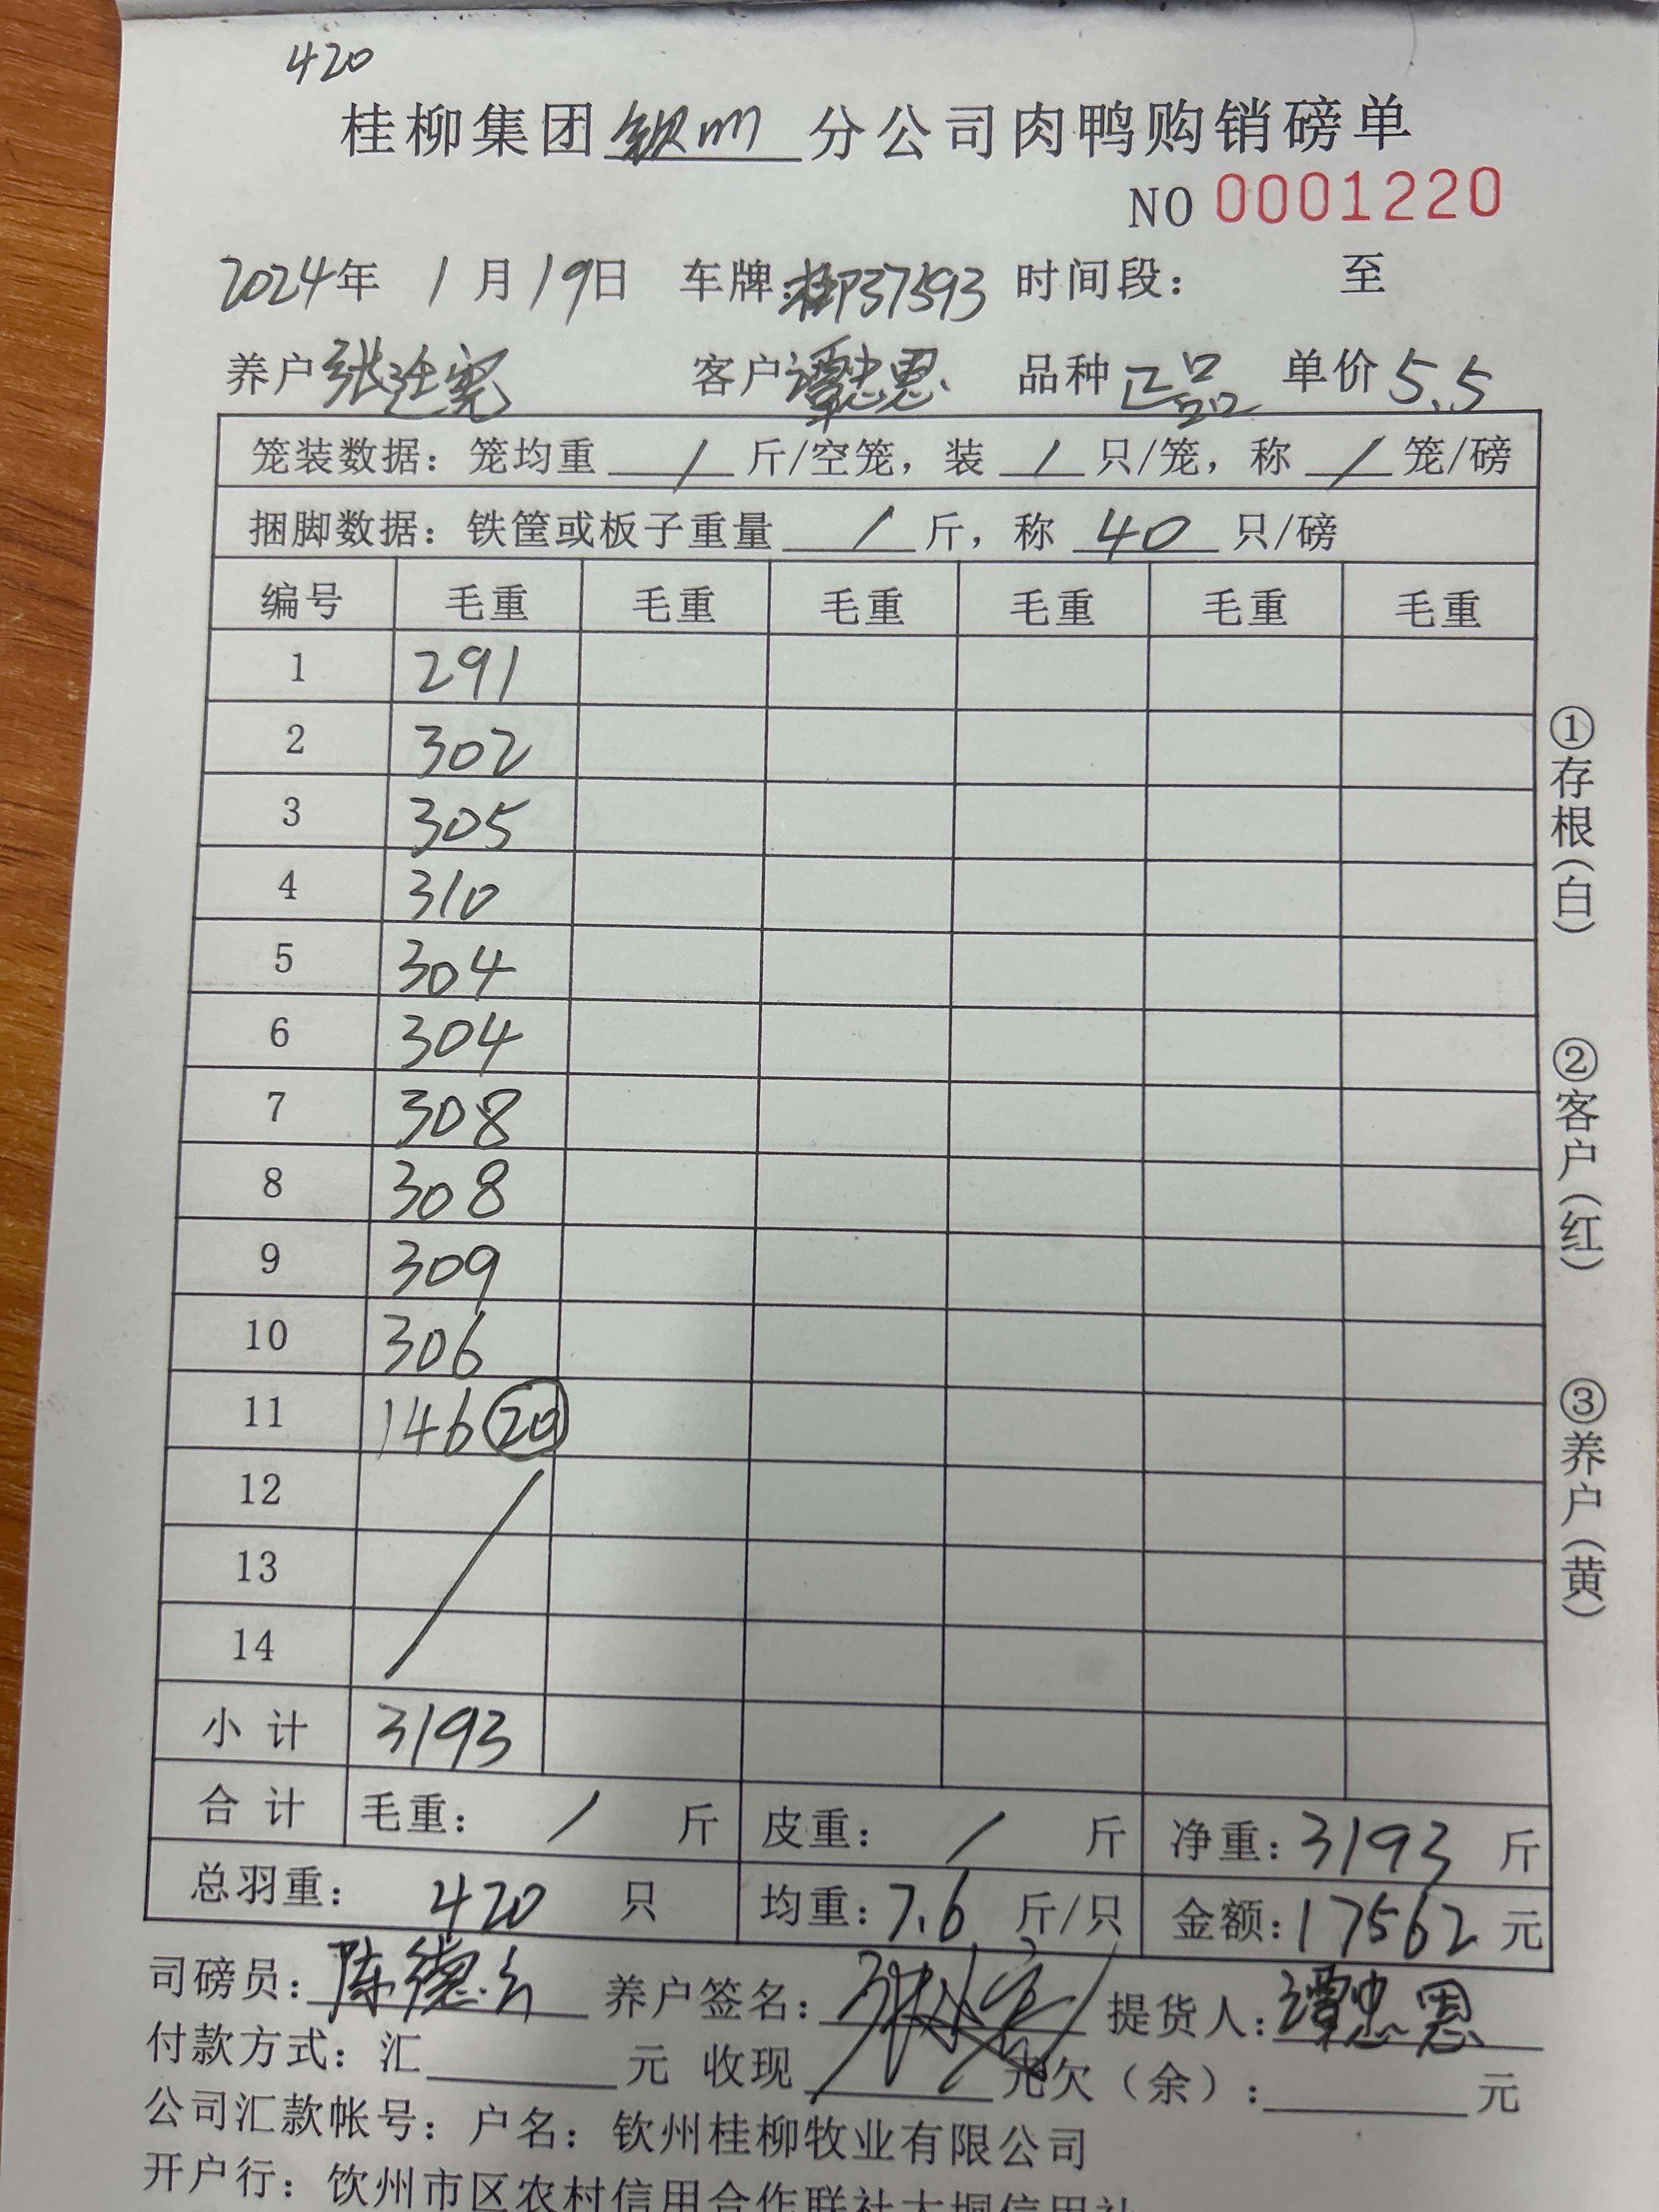 420
桂柳集团钦州分公司肉鸭购销磅单
NO 0001220
2024年 1月19日 车牌:桂P37593 时间段: 至
养户张 客户谭忠恩 品种正品 单价5.5
笼装数据: 笼均重 / 斤/空笼, 装 / 只/笼, 称 / 笼/磅
捆脚数据: 铁筐或板子重量 / 斤, 称 40 只/磅
编号 毛重 毛重 毛重 毛重 毛重 毛重
1 291
2 302
3 305
4 310
5 304
6 304
7 308
8 308
9 309
10 306
11 146 20
12
13
14
小计 3193
合计 毛重: / 斤 皮重: / 斤 净重: 3193 斤
总羽重: 420 只 均重: 7.6 斤/只 金额: 17562 元
司磅员: 陈德 养户签名: 张 提货人: 谭忠恩
付款方式: 汇 元 收现 元欠(余): 元
公司汇款帐号: 户名: 钦州桂柳牧业有限公司
开户行: 钦州市区农村信用合作联社大垌信用社
①存根(白)
②客户(红)
③养户(黄)